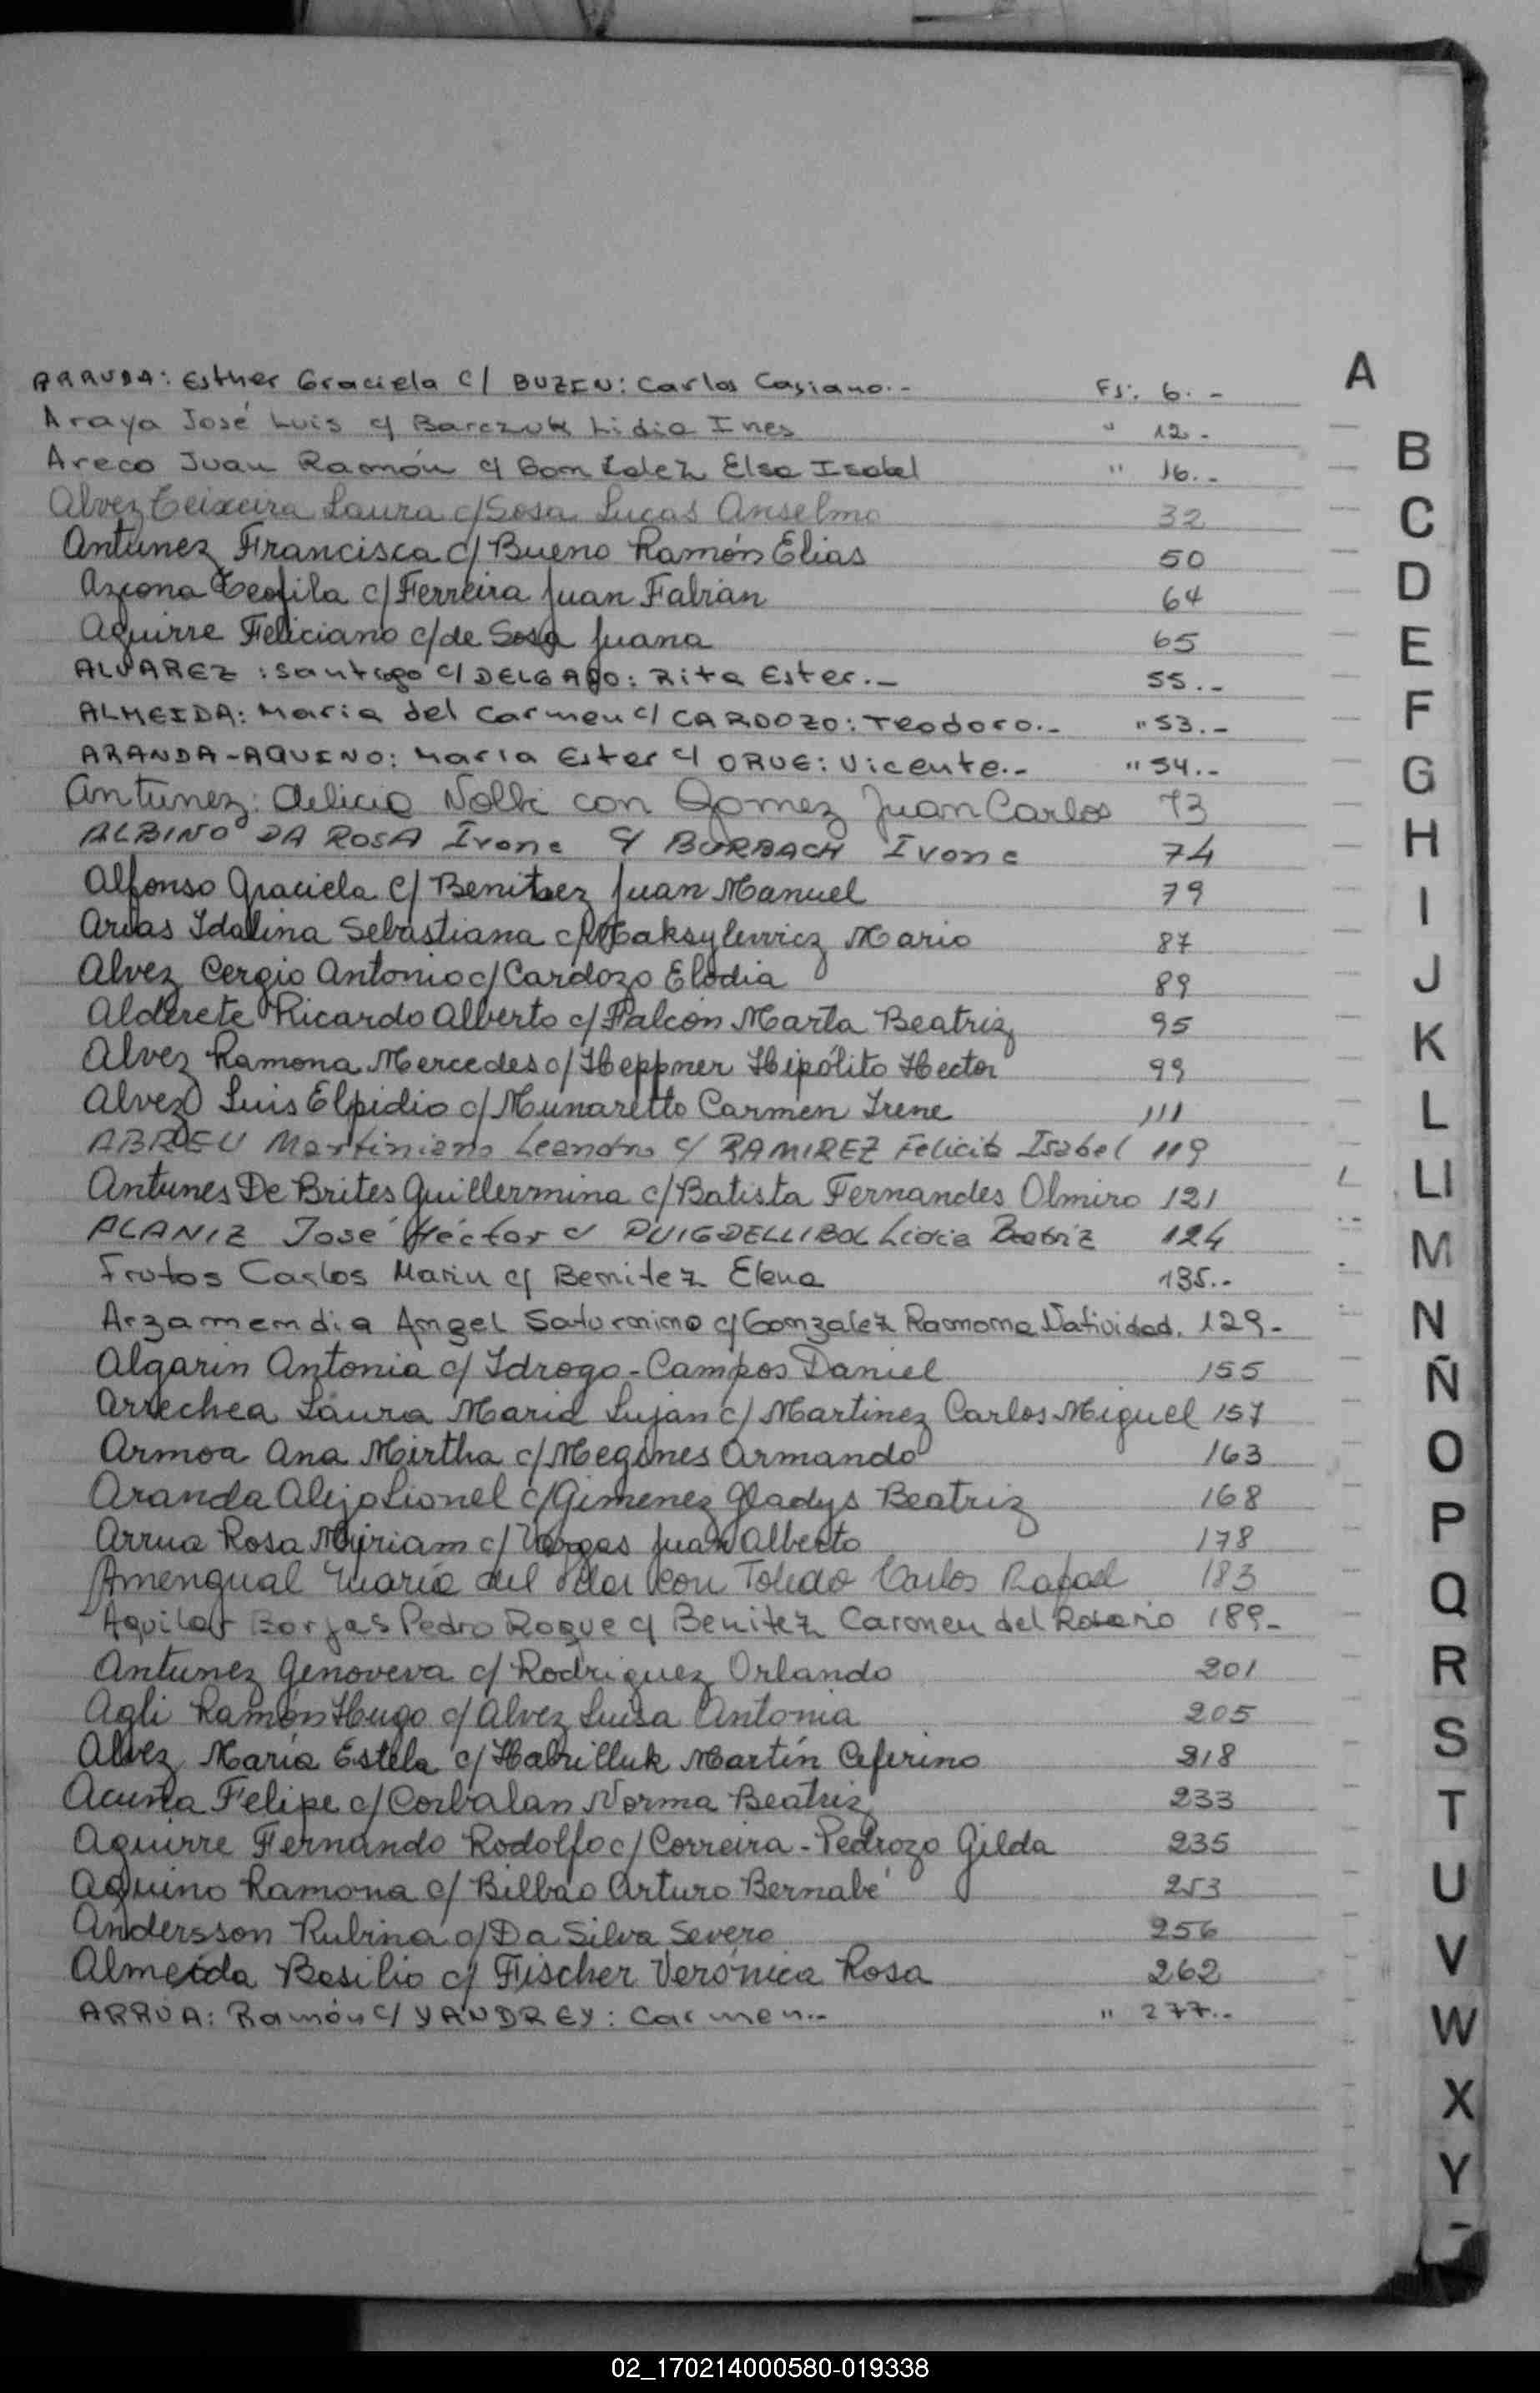 ARRUDA: Esther Graciela C/ BUZEN: Carlos Casiano.- Fs: 6. -
Araya José Luis c/ Barczuk Lidia Ines " 12 -
Areco Juan Ramón c/ Gonzalez Elsa Isabel " 16.-
Alvez Teixeira Laura c/ Sosa Lucas Anselmo 32
Antunez Francisca c/ Bueno Ramón Elias 50
Azcona Teofila c/ Ferreira Juan Fabian 64
Aguirre Feliciano c/ de Sosa Juana 65
ALVAREZ: Santiago c/ DELGADO: Rita Ester.- 55.-
ALMEIDA: Maria del Carmen c/ CARDOZO: Teodoro.- " 53.-
ARANDA-AQUINO: Maria Ester c/ ORUE: Vicente.- " 54.-
Antunez: Delicia con Gomez Juan Carlos 73
ALBINO DA ROSA Ivone c/ BURBACH Ivone 74
Alfonso Graciela c/ Benitez Juan Manuel 79
Arias Idalina Sebastiana c/ Maksylewicz Mario 87
Alvez Cergio Antonio c/ Cardozo Elodia 89
Alderete Ricardo Alberto c/ Falcón Marta Beatriz 95
Alvez Ramona Mercedes c/ Heppner Hipólito Hector 99
Alvez Luis Elpidio c/ Munaretto Carmen Irene 111
ABREU Martiniano Leandro c/ RAMIREZ Felicita Isabel 119
Antunes De Brites Guillermina c/ Batista Fernandes Olmiro 121
ALANIZ José Héctor c/ PUIGDELLIBOL Lidia Beatriz 124
Frutos Carlos Mariu c/ Benitez Elena 135.-
Arzamendia Angel Saturnino c/ Gonzalez Ramona Natividad. 129-
Algarin Antonia c/ Idrogo-Campos Daniel 155
Arrechea Laura Maria Lujan c/ Martinez Carlos Miguel 157
Armoa Ana Mirtha c/ Megines Armando 163
Aranda Alejo Lionel c/ Gimenez Gladys Beatriz 168
Arrua Rosa Myriam c/ Vargas Juan Alberto 178
Amengual María del con Toledo Carlos Rafael 183
Aquilar Borjas Pedro Roque c/ Benitez Carmen del Rosario 189-
Antunez Genoveva c/ Rodriguez Orlando 201
Agli Ramón Hugo c/ Alvez Luisa Antonia 205
Alvez María Estela c/ Habrilluk Martín Ceferino 218
Acuña Felipe c/ Corbalan Norma Beatriz 233
Aguirre Fernando Rodolfo c/ Correira-Pedrozo Gilda 235
Aquino Ramona c/ Bilbao Arturo Bernabé 253
Andersson Rubina c/ Da Silva Severo 256
Almeida Basilio c/ Fischer Verónica Rosa 262
ARRÚA: Ramón c/ YANDREY: Carmen.- " 277.-
A
B
C
D
E
F
G
H
I
J
K
L
Ll
M
N
Ñ
O
P
Q
R
S
T
U
V
W
X
Y
02_170214000580-019338